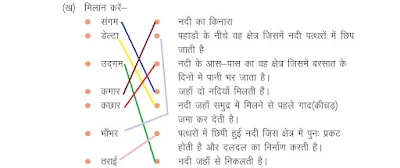 (ख) मिलान करें–
संगम नदी का किनारा
डेल्टा पहाडों के नीचे वह क्षेत्र जिसमें नदी पत्थरों में छिप
जाती है
उद्गम नदी के आस–पास का वह क्षेत्र जिसमें बरसात के
दिनों में पानी भर जाता है।
कगार जहाँ दो नदियाँ मिलती हैं।
कछार नदी जहाँ समुद्र में मिलने से पहले गाद(कीचड़)
जमा कर देती है।
भाँभर पत्थरों में छिपी हुई नदी जिस क्षेत्र में पुनः प्रकट
होती है और दलदल का निर्माण करती है।
तराई नदी जहाँ से निकलती है।